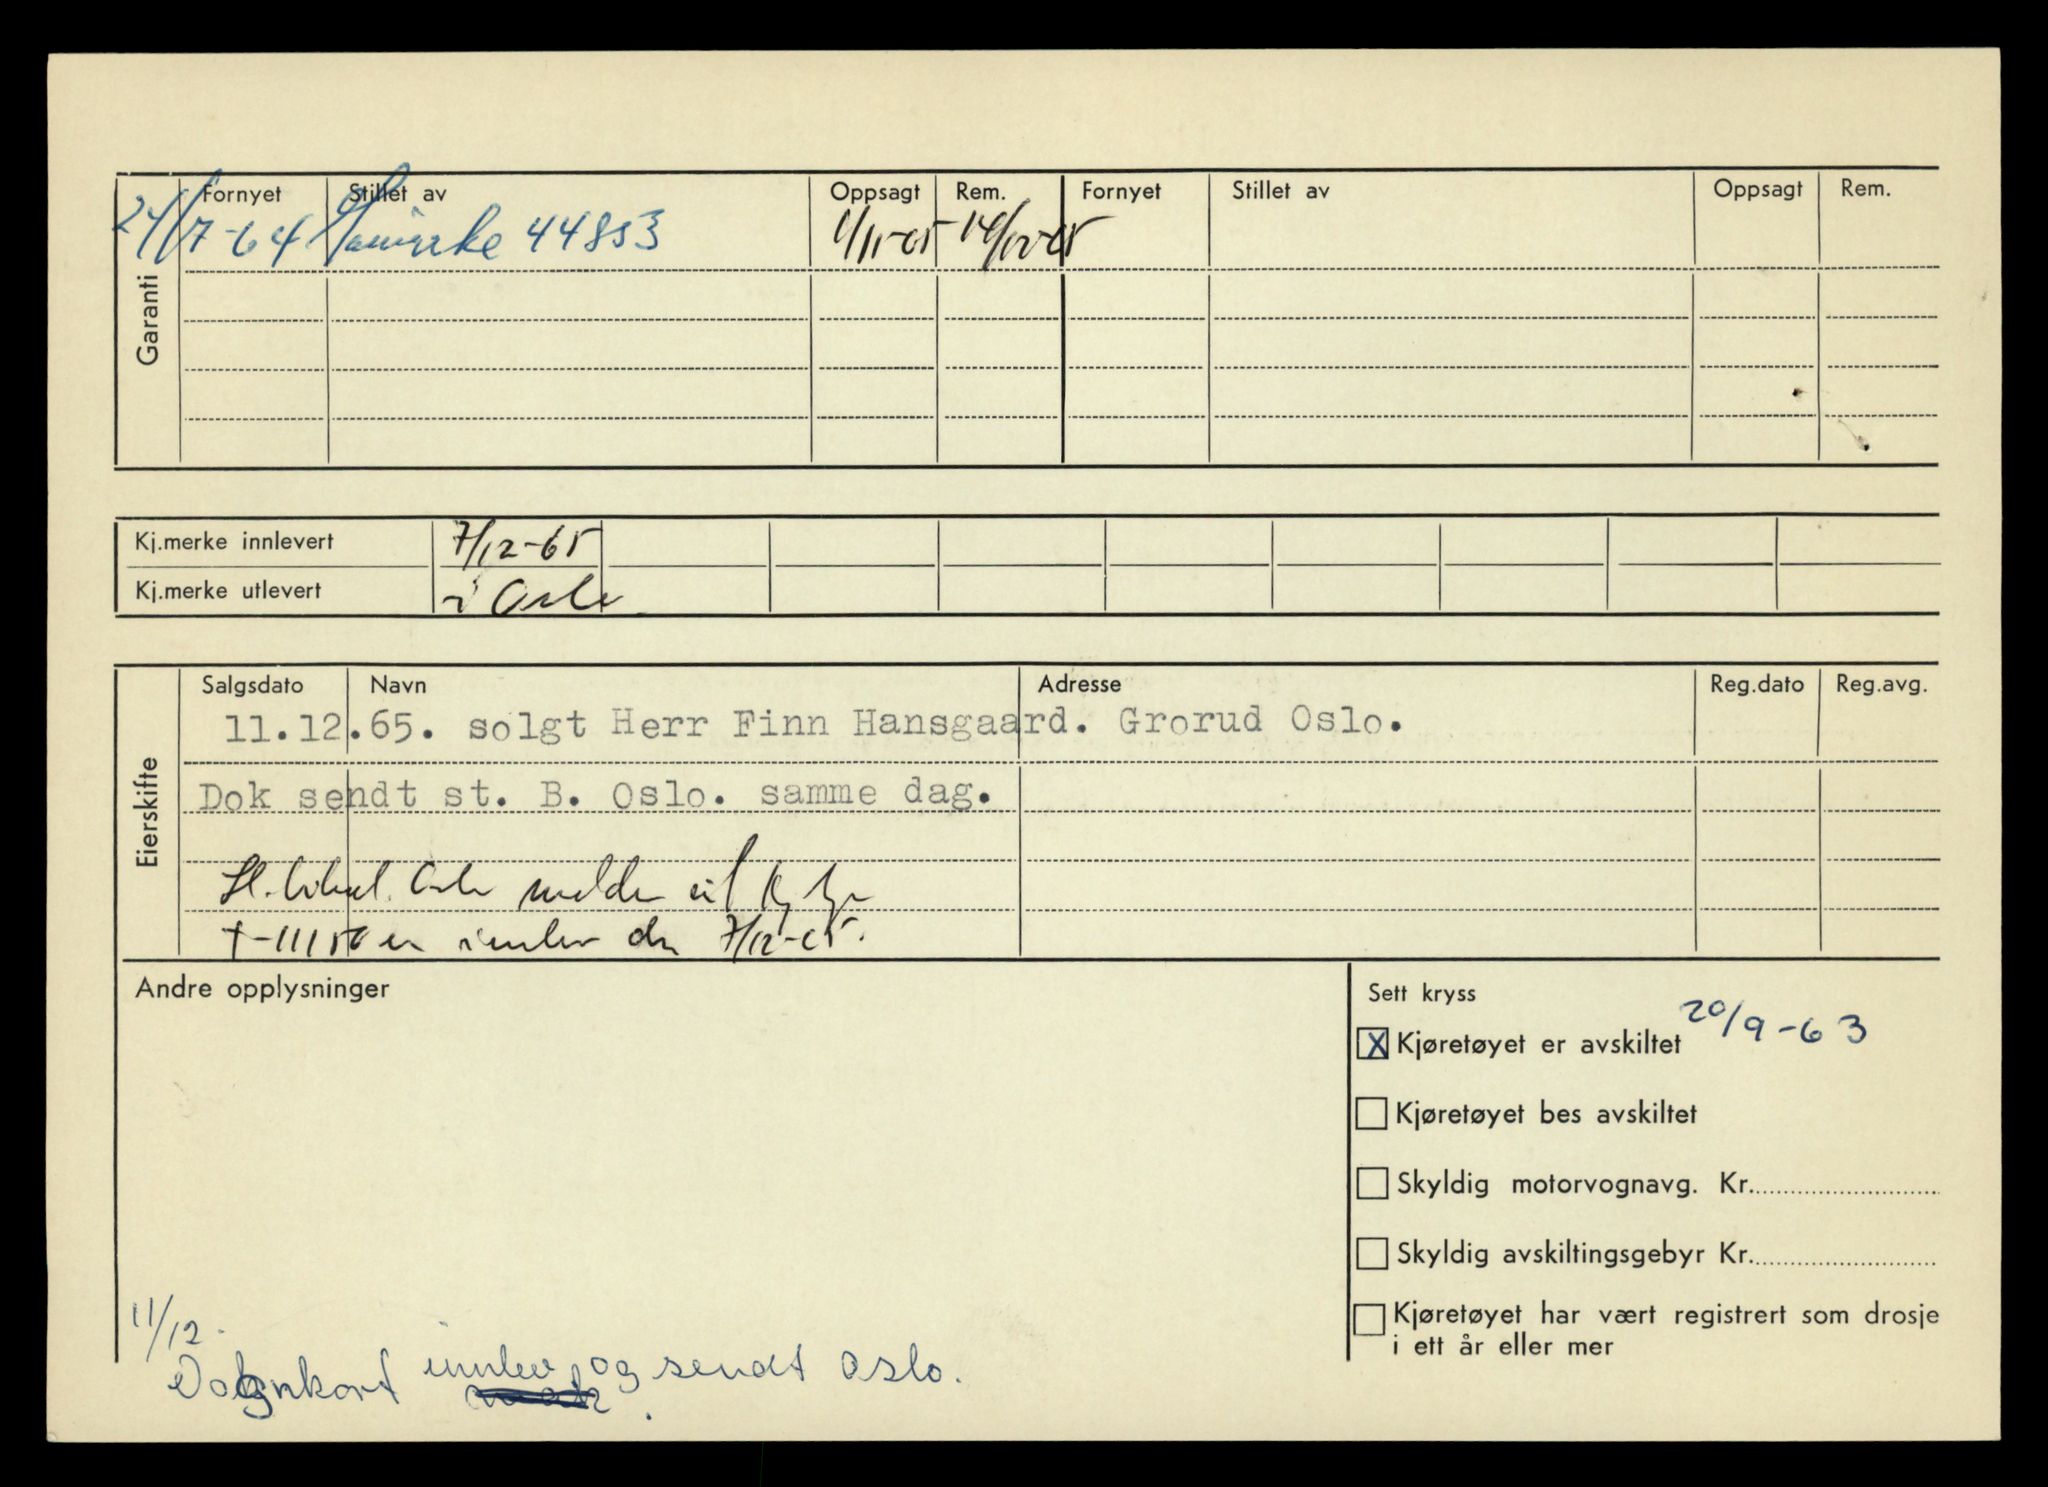 Garanti
Fornyet Stillet av Oppsagt Rem. Fornyet Stillet av Oppsagt Rem.
24/7-64 44853 1/11-65 14/12-65
Kj.merke innlevert 7/12-65
Kj.merke utlevert i Oslo
Eierskifte
Salgsdato Navn Adresse Reg.dato Reg.avg.
11.12.65. solgt Herr Finn Hansgaard. Grorud Oslo.
Dok sendt st. B. Oslo. samme dag.
Oslo melder
er innlev den 7/12-65.
Andre opplysninger
Sett kryss
X Kjøretøyet er avskiltet 20/9-63
Kjøretøyet bes avskiltet
Skyldig motorvognavg. Kr.
Skyldig avskiltingsgebyr Kr.
Kjøretøyet har vært registrert som drosje
i ett år eller mer
11/12.
Vognkort innlev og sendt Oslo.